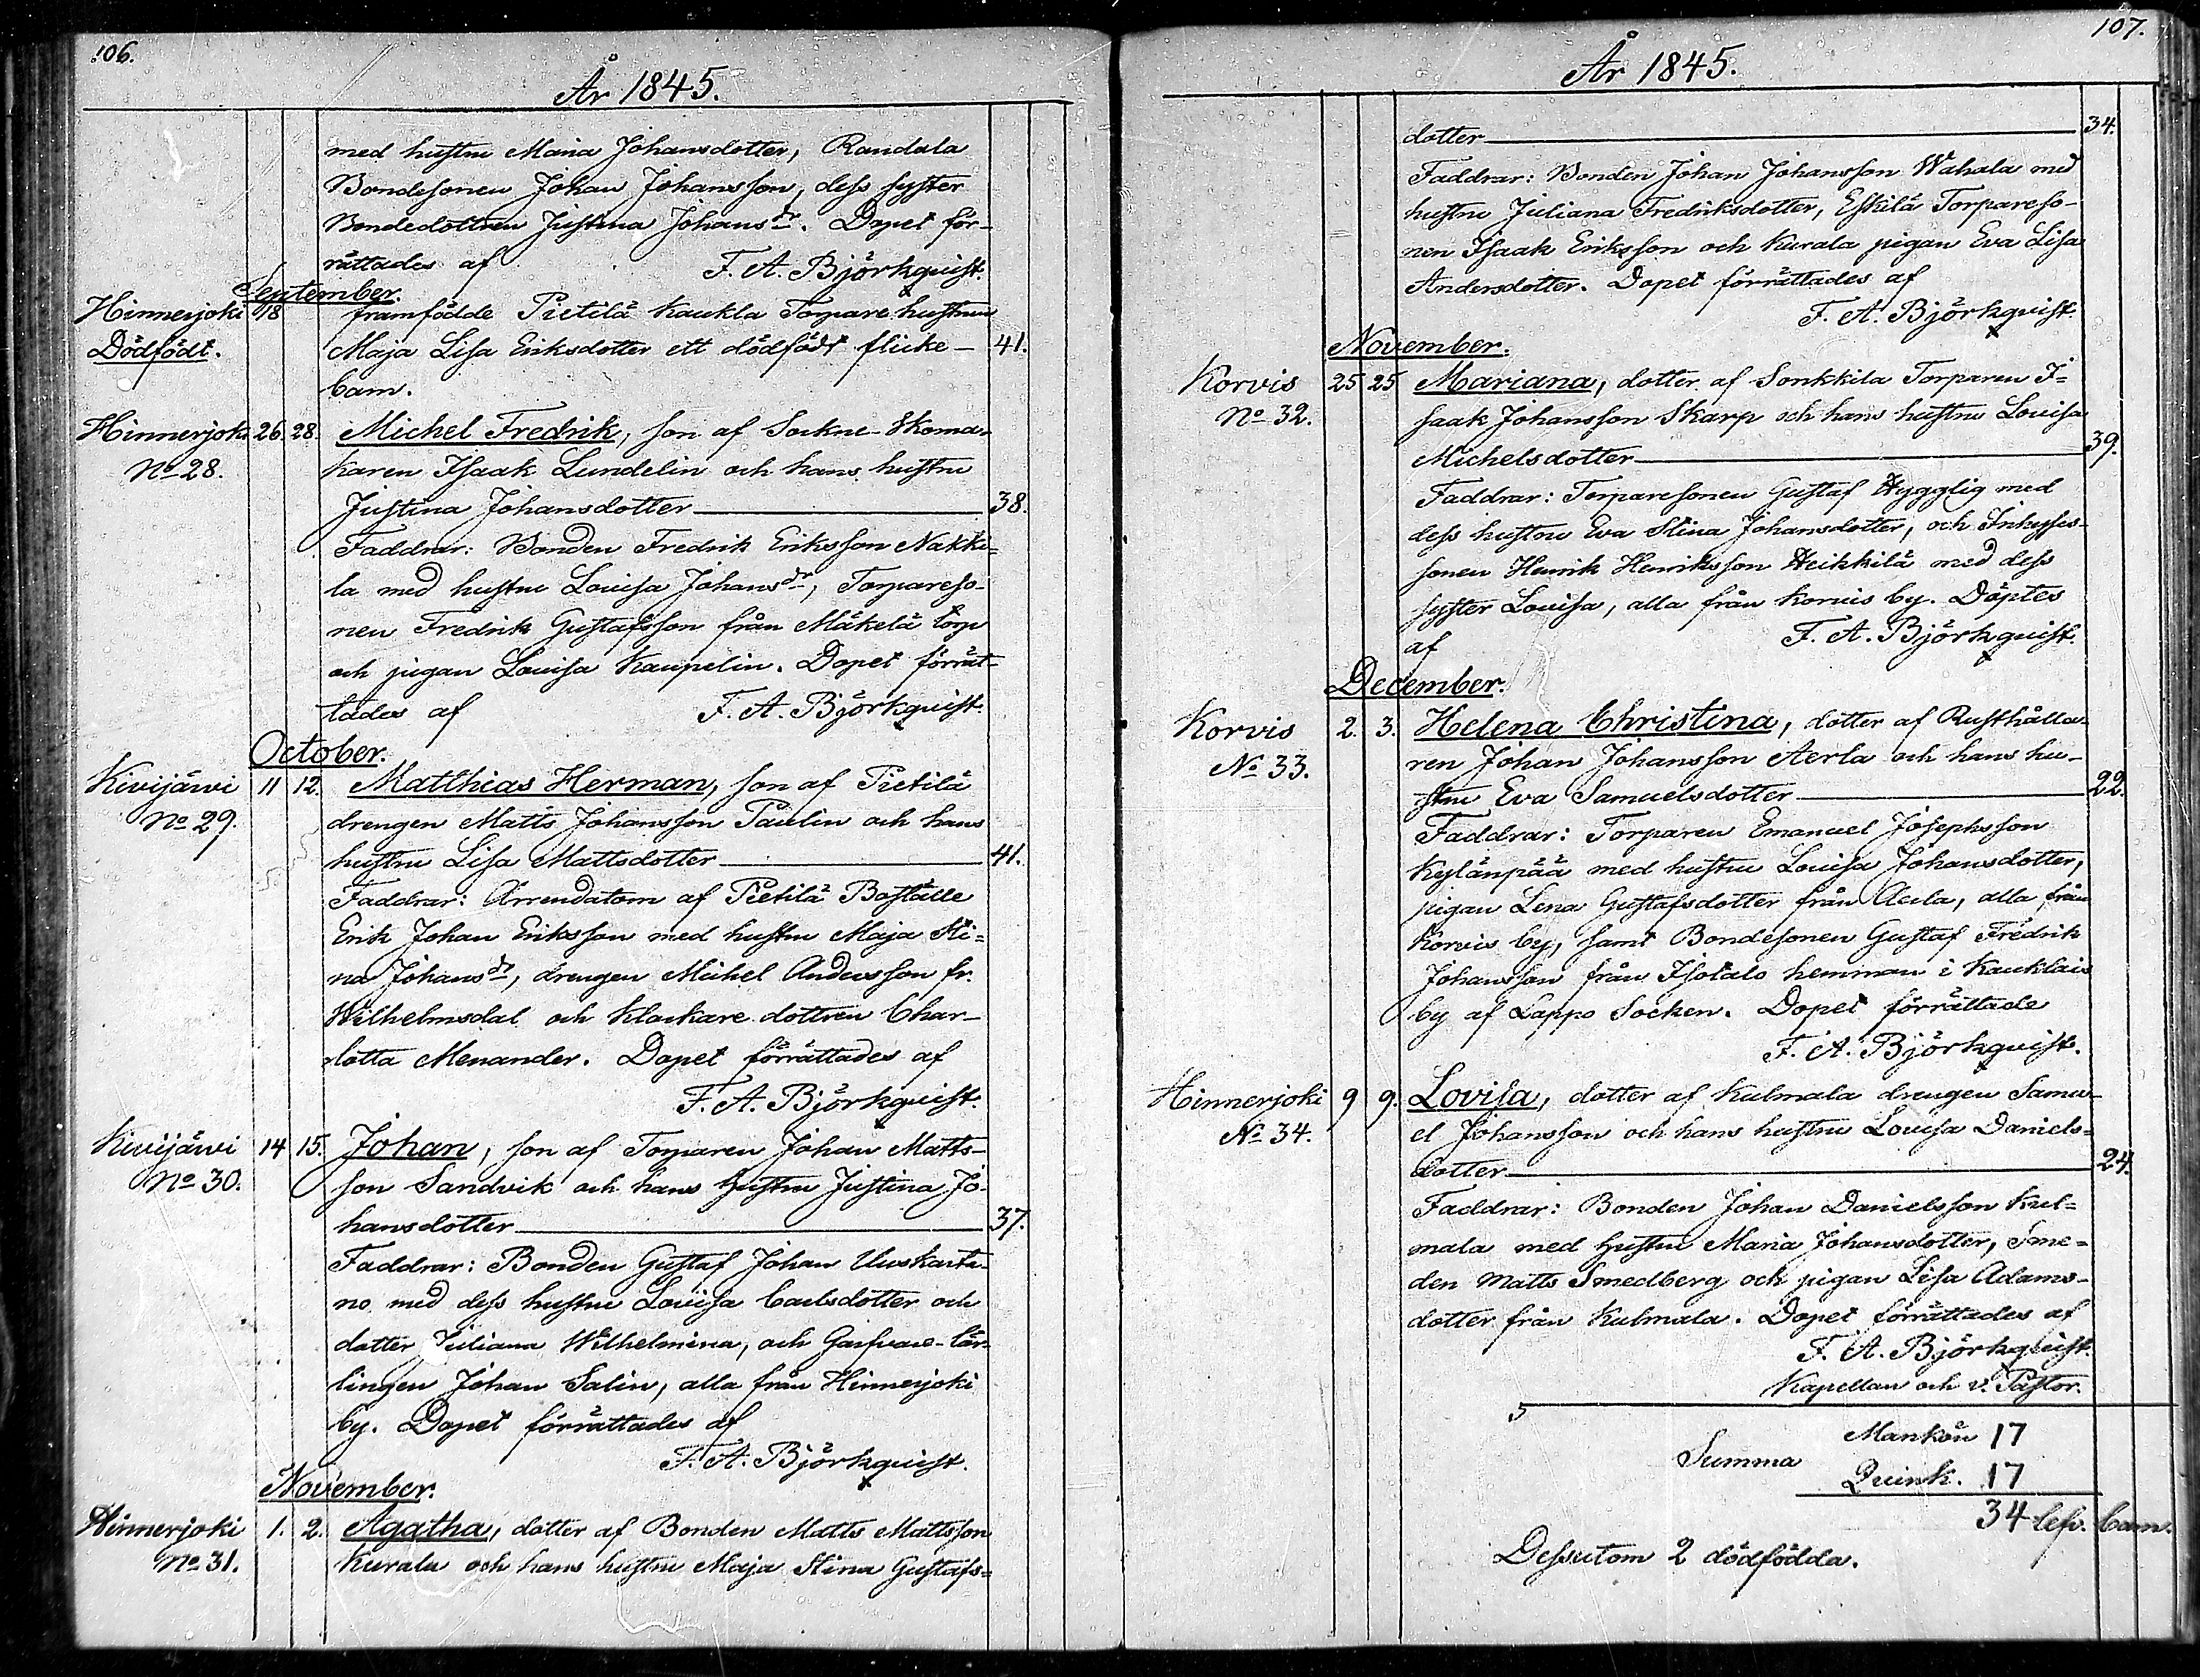 106.
År 1845.
med hustru Maria Johansdotter, Randala
Bondesonen Johan Johansson, dess syster
Bondedottren Justina Johansdr. Dopet för-
rättades af F. A. Björkqvist.
September.
Hinnerjoki 18 framfödde Pietilä Kaukla Torpare hustrun
Dödfödt. Maja Lisa Eriksdotter ett dödfödt flicke- 41.
barn.
Hinnerjoki 26. 28. Michel Fredrik, son af Sockne Skoma-
No 28. karen Isaak Lundelin och hans hustru
Justina Johansdotter 38.
Faddrar: Bonden Fredrik Eriksson Nakki-
la med hustru Lovisa Johansdr, Torpareso-
nen Fredrik Gustafsson från Mäkelä torp
och pigan Lovisa Kaupelin. Dopet förrät-
tades af F. A. Björkqvist.
October.
Kivijärvi 11 12. Matthias Herman, son af Pietilä
No 29. drengen Matts Johansson Paulin och hans
hustru Lisa Mattsdotter 41.
Faddrar: Arrendatorn af Pietilä Boställe
Erik Johan Eriksson med hustru Maja Sti-
na Johansdr, drengen Michel Andersson fr.
Wilhelmsdal och Klockare dottren Char-
lotta Menander. Dopet förrättades af
F. A. Björkqvist.
Kivijärvi 14 15. Johan, son af Torparen Johan Matts-
No 30. son Sandvik och hans hustru Justina Jo-
hansdotter 37.
Faddrar: Bonden Gustaf Johan Uuskarta-
no med dess hustru Lovisa Carlsdotter och
dotter Juliana Wilhelmina, och Garfvare-lär-
lingen Johan Salin, alla från Hinnerjoki
by. Dopet förrättades af
F. A. Björkqvist.
November.
Hinnerjoki 1. 2. Agatha, dotter af Bonden Matts Mattsson
No 31. Kurala och hans hustru Maja Stina Gustafs-
107.
År 1845.
dotter 34.
Faddrar: Bonden Johan Johansson Wahala med
hustru Juliana Fredriksdotter, Eskilä Torpareso-
nen Isaak Eriksson och Kurala pigan Eva Lisa
Andersdotter. Dopet förrättades af
F. A. Björkqvist.
November.
Korvis 25 25 Mariana, dotter af Sonkkila Torparen I-
No 32. saak Johansson Skarp och hans hustru Lovisa
Michelsdotter 39.
Faddrar: Torparesonen Gustaf Hygglig med
dess hustru Eva Stina Johansdotter, och Inhyses-
sonen Henrik Henriksson Heikkilä med dess
syster Lovisa, alla från Korvis by. Döptes
af F. A. Björkqvist.
December.
Korvis 2. 3. Helena Christina, dotter af Rusthålla-
No 33. ren Johan Johansson Aerla och hans hu-
stru Eva Samuelsdotter 22.
Faddrar: Torparen Emanuel Josephsson
Kylänpää med hustru Lovisa Johansdotter,
pigan Lena Gustafsdotter från Aerla, alla från
Korvis by, samt Bondesonen Gustaf Fredrik
Johansson från Isotalo hemman i Kauklais
by af Lappo Socken. Dopet förrättade
F. A. Björkqvist.
Hinnerjoki 9 9. Lovisa, dotter af Kulmala drengen Samu-
No 34. el Johansson och hans hustru Lovisa Daniels-
dotter 24.
Faddrar: Bonden Johan Danielsson Kul-
mala med hustru Maria Johansdotter, Sme-
den Matts Smedberg och pigan Lisa Adams-
dotter från Kulmala. Dopet förrättades af
F. A. Björkqvist.
Kapellan och v. Pastor.
Mankön 17
Summa
Quink. 17
34 lefv. barn.
Dessutom 2 dödfödda.